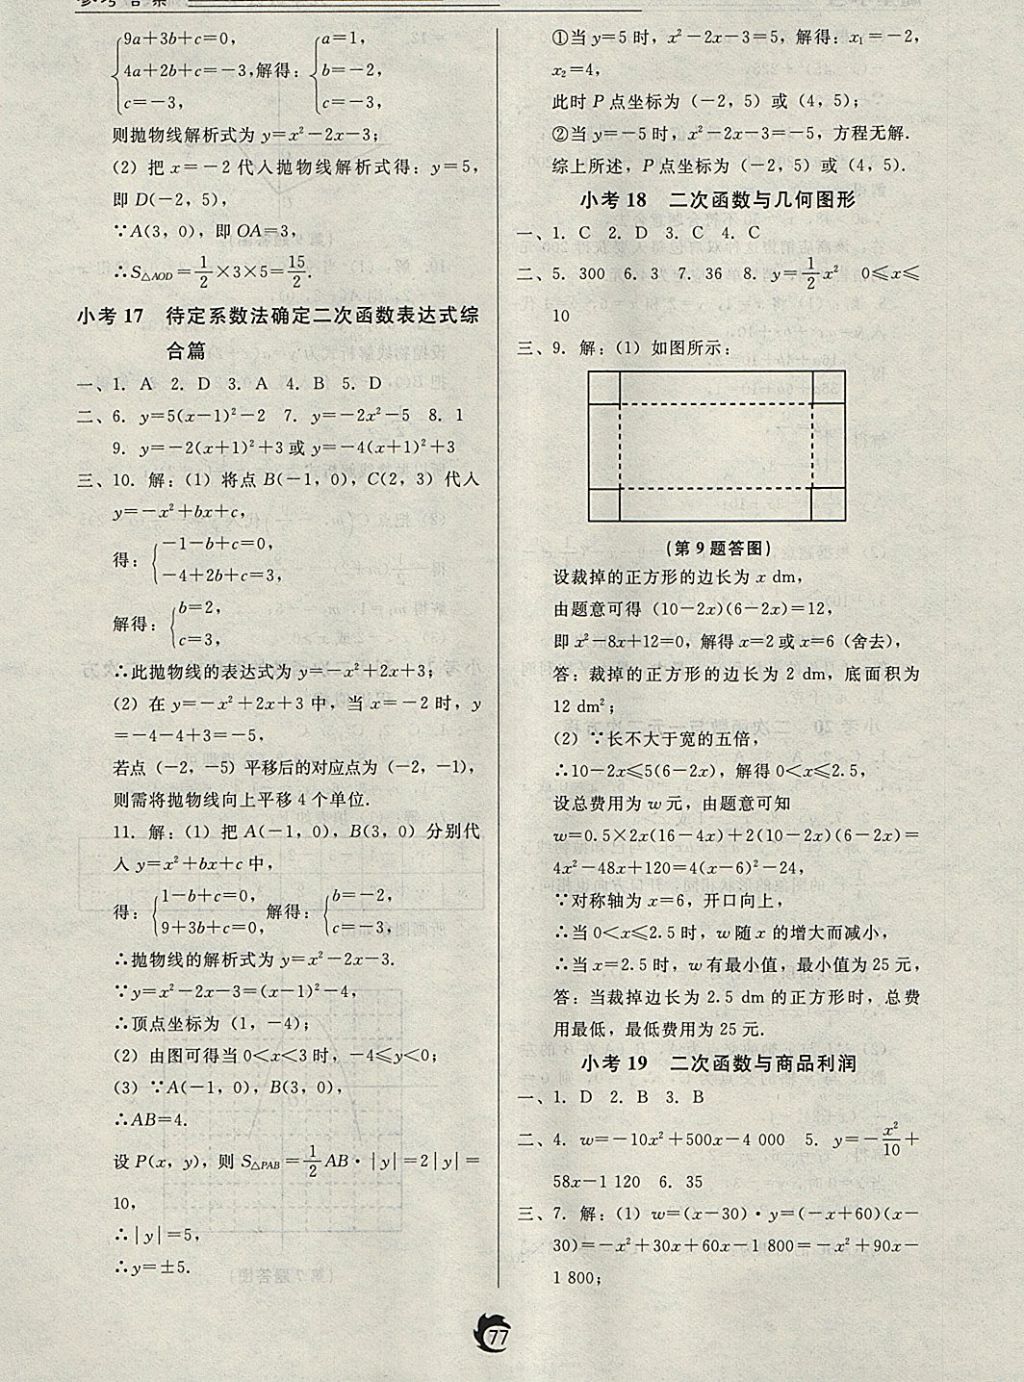 参考答案
9a+3b+c=0,
4a+2b+c=-3,解得:
c=-3,
a=1,
b=-2,
c=-3,
则抛物线解析式为 y=x²-2x-3;
(2) 把 x=-2 代入抛物线解析式得: y=5,
即 D(-2, 5),
∵A(3, 0), 即 OA=3,
∴S△AOD=1/2×3×5=15/2.
小考 17 待定系数法确定二次函数表达式综
合篇
一、1. A 2. D 3. A 4. B 5. D
二、6. y=5(x-1)²-2 7. y=-2x²-5 8. 1
9. y=-2(x+1)²+3 或 y=-4(x+1)²+3
三、10. 解: (1) 将点 B(-1, 0), C(2, 3) 代入
y=-x²+bx+c,
得: {-1-b+c=0,
-4+2b+c=3,
解得: {b=2,
c=3,
∴此抛物线的表达式为 y=-x²+2x+3;
(2) 在 y=-x²+2x+3 中, 当 x=-2 时, y
=-4-4+3=-5,
若点 (-2, -5) 平移后的对应点为 (-2, -1),
则需将抛物线向上平移 4 个单位.
11. 解: (1) 把 A(-1, 0), B(3, 0) 分别代
入 y=x²+bx+c 中,
得: {1-b+c=0,
9+3b+c=0,
解得: {b=-2,
c=-3,
∴抛物线的解析式为 y=x²-2x-3.
∵y=x²-2x-3=(x-1)²-4,
∴顶点坐标为 (1, -4);
(2) 由图可得当 0<x<3 时, -4≤y<0;
(3) ∵A(-1, 0), B(3, 0),
∴AB=4.
设 P(x, y), 则 S△PAB=1/2AB·|y|=2|y|=
10,
∴|y|=5,
∴y=±5.
①当 y=5 时, x²-2x-3=5, 解得: x₁=-2,
x₂=4,
此时 P 点坐标为 (-2, 5) 或 (4, 5);
②当 y=-5 时, x²-2x-3=-5, 方程无解.
综上所述, P 点坐标为 (-2, 5) 或 (4, 5).
小考 18 二次函数与几何图形
一、1. C 2. D 3. C 4. C
二、5. 300 6. 3 7. 36 8. y=1/2x² 0≤x≤
10
三、9. 解: (1) 如图所示:
(第 9 题答图)
设裁掉的正方形的边长为 x dm,
由题意可得 (10-2x)(6-2x)=12,
即 x²-8x+12=0, 解得 x=2 或 x=6 (舍去),
答: 裁掉的正方形的边长为 2 dm, 底面积为
12 dm²;
(2) ∵长不大于宽的五倍,
∴10-2x≤5(6-2x), 解得 0<x≤2.5,
设总费用为 w 元, 由题意可知
w=0.5×2x(16-4x)+2(10-2x)(6-2x)=
4x²-48x+120=4(x-6)²-24,
∵对称轴为 x=6, 开口向上,
∴当 0<x≤2.5 时, w 随 x 的增大而减小,
∴当 x=2.5 时, w 有最小值, 最小值为 25 元,
答: 当裁掉边长为 2.5 dm 的正方形时, 总费
用最低, 最低费用为 25 元.
小考 19 二次函数与商品利润
一、1. D 2. B 3. B
二、4. w=-10x²+500x-4 000 5. y=-x²/10+
58x-1 120 6. 35
三、7. 解: (1) w=(x-30)·y=(-x+60)(x-
30)=-x²+30x+60x-1 800=-x²+90x-
1 800;
77